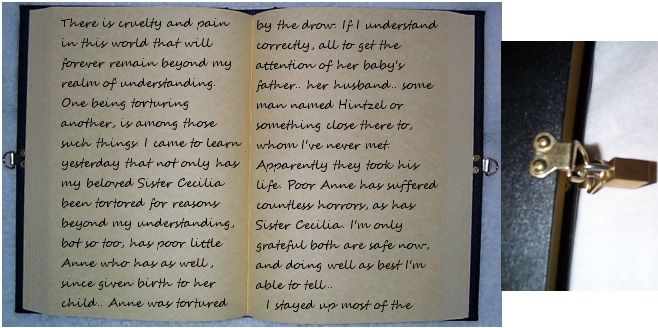 There is cruelty and pain
in this world that will
forever remain beyond my
realm of understanding.
One being torturing
another, is among those
such things. I came to learn
yesterday that not only has
my beloved Sister Cecilia
been tortored for reasons
beyond my understanding,
bot so too, has poor little
Anne who has as well,
since given birth to her
child.. Anne was tortured
by the drow. If I understand
correctly, all to get the
attention of her baby's
father.. her husband.. some
man named Hintzel or
something close there to,
whom I've never met.
Apparently they took his
life. Poor Anne has suffered
countless horrors, as has
Sister Cecilia. I'm only
grateful both are safe now,
and doing well as best I'm
able to tell..
I stayed up most of the